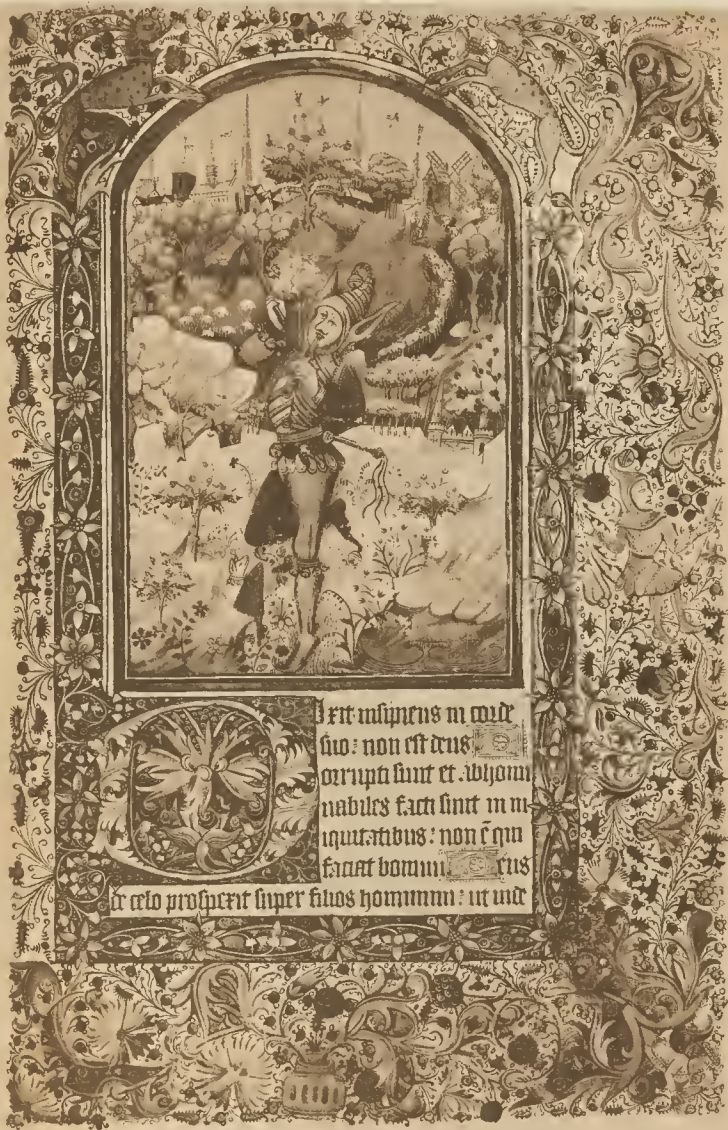 Dixit insipiens in corde
suo: non est deus
Corrupti sunt et abhomi
nabiles facti sunt in in
iquitatibus: non ē qui
faciat bonum Deus
de celo prospexit super filios hominum: ut uid